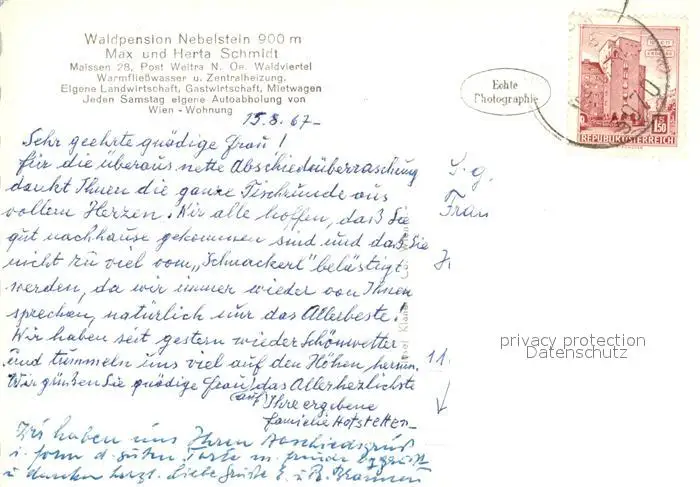 Waldpension Nebelstein 900 m
Max und Herta Schmidt
Maissen 28, Post Weitra N. Oe. Waldviertel
Warmfließwasser u. Zentralheizung.
Eigene Landwirtschaft, Gastwirtschaft, Mietwagen
Jeden Samstag eigene Autoabholung von
Wien - Wohnung
Echte
Photographie
1S50
REPUBLIK ÖSTERREICH
3970
15.8.67-
Sehr geehrte gnädige Frau!
Für die überaus nette Abschiedsüberraschung
dankt Ihnen die ganze Tischrunde aus
vollem Herzen. Wir alle hoffen, daß Sie
gut nachhause gekommen sind und daß Sie
nicht zu viel vom „Schnackerl" belästigt
werden, da wir immer wieder von Ihnen
sprechen, natürlich nur das Allerbeste.
Wir haben seit gestern wieder Schönwetter
und tummeln uns viel auf den Höhen herum.
Wir grüßen Sie gnädige Frau auf das Allerherzlichste
Ihre ergebene
Familie Hofstetten
haben uns Ihren Abschiedsgruß
i. form d. guten Torte m. freude
u danken herzl. Liebe Grüße E. u. R.
S. g.
Frau
11.
privacy protection
Datenschutz